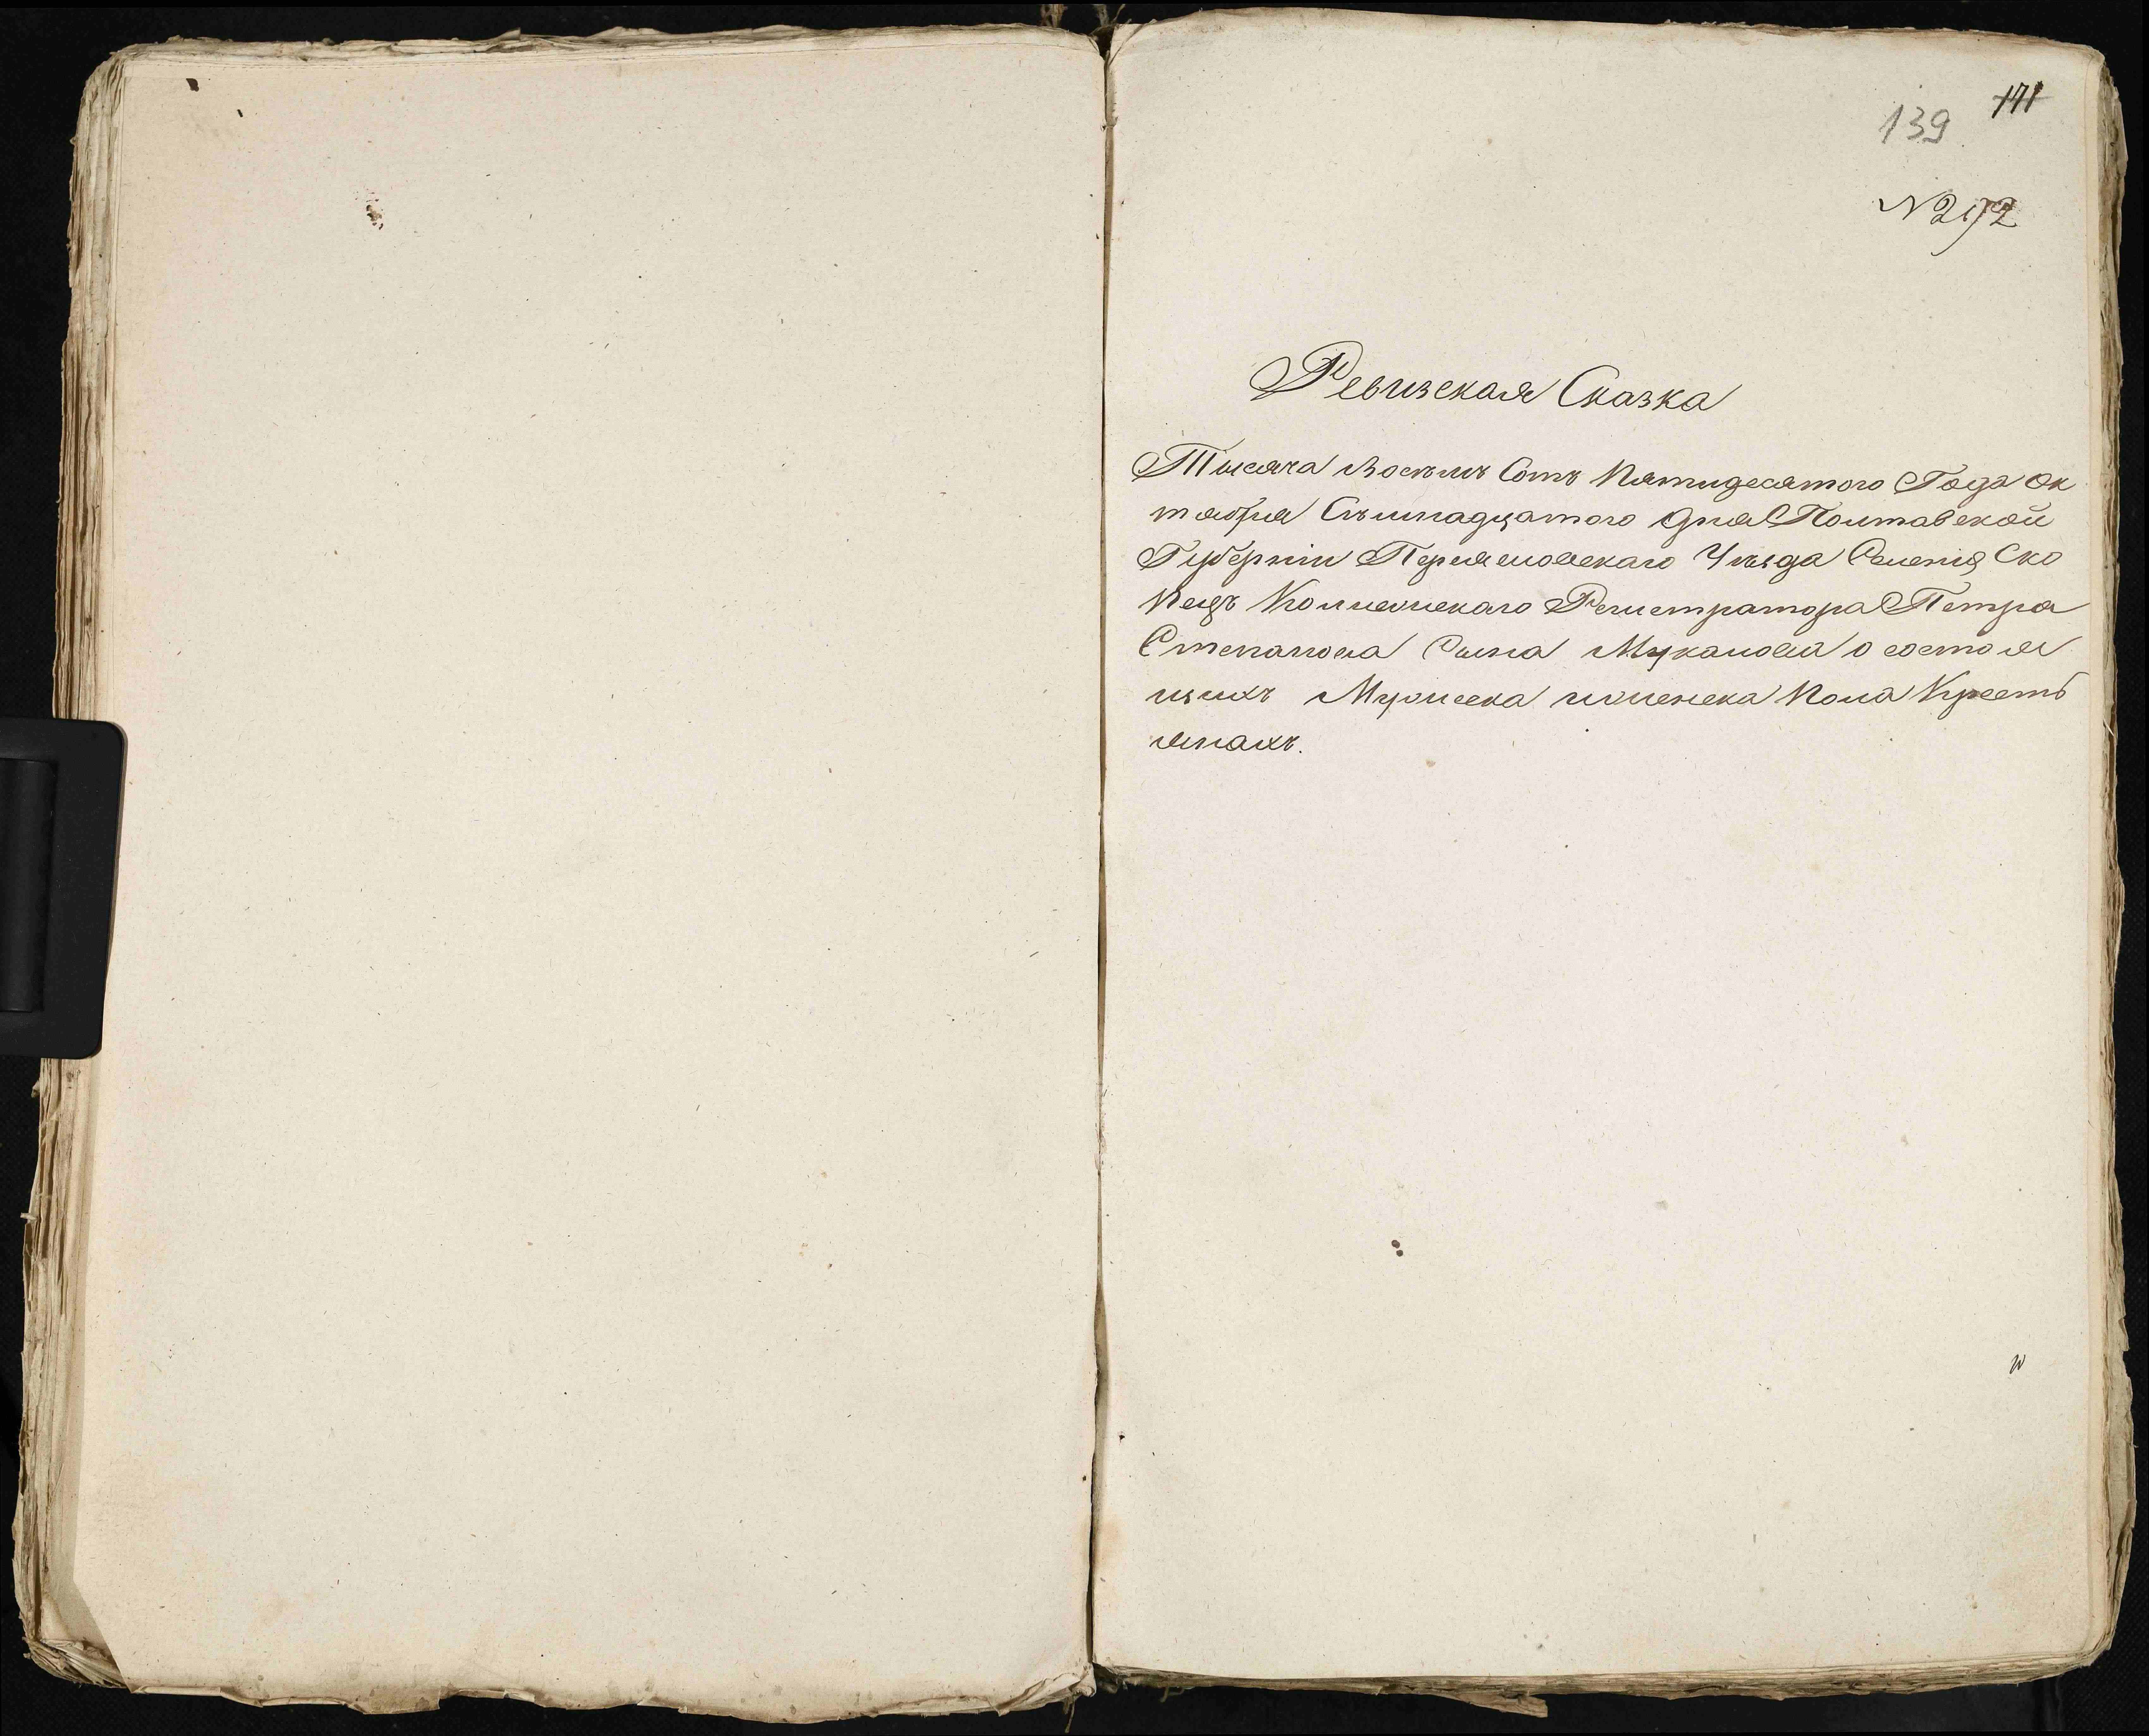 171
139
N 272
Ревизская Сказка
Тысяча Восемь Сотъ Пятидесятого Года Ок
тября Съмнадцатого Дня Полтавской
Губерніи Переясловскаго Уѣзда Селенія Ско
Пецъ Коллежскаго Регистратора Петра
Степанова Сына Мукалова о состоя
щихъ Мужеска иженска Пола Кресть
янахъ.